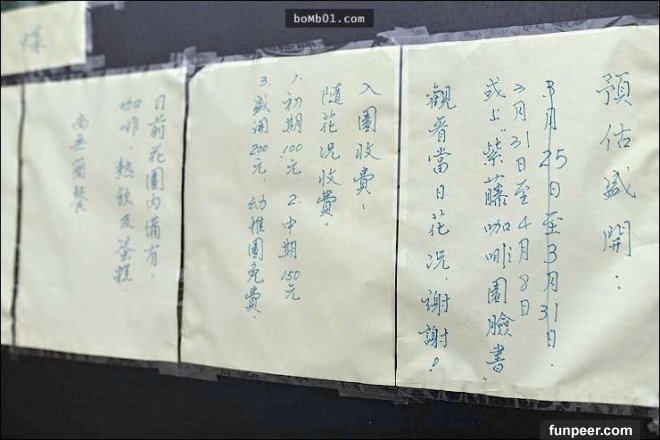 BOMB01.COM
預估盛開：
3月25日至3月31日．
3月31日至4月8日
或上"紫藤咖啡園臉書"
觀看當日花況，謝謝！
入園收費：
隨花況收費．
1.初期100元 2.中期150元
3.盛開200元 幼稚園免費．
目前花園內備有．
咖啡．熱飲及蛋糕．
尚無簡餐
funpeer.com